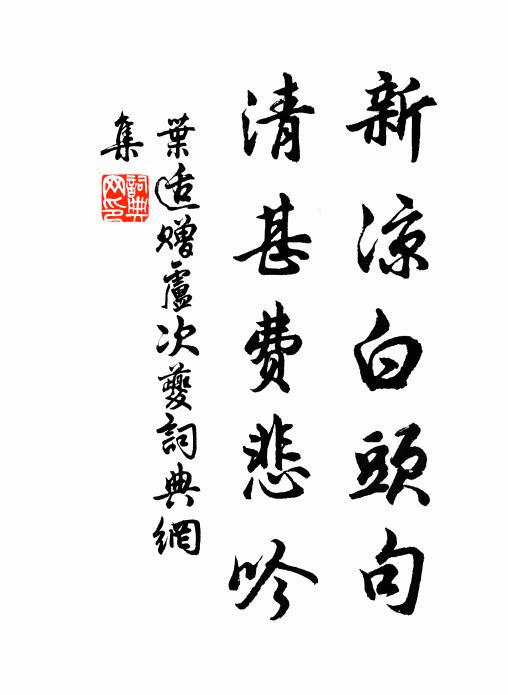 新涼白頭句
清甚費悲吟
葉适贈盧次夔詞典網
集
詞典網印